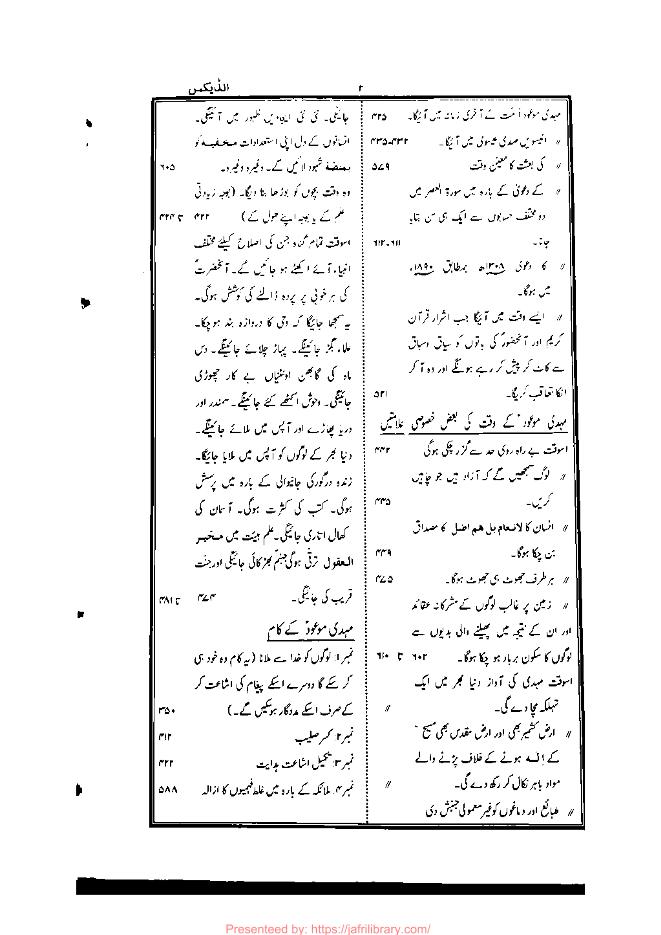 ۲
انڈیکس
مہدی موعود امت کے آخری زمانہ میں آئیگا۔ ۴۲۵
〃 انیسویں صدی عیسوی میں آئیگا۔ ۴۳۲-۴۳۵
〃 کی بعثت کا معین وقت ۵۷۹
〃 کے دعویٰ کے بارہ میں سورۃ العصر میں
دو مختلف حسابوں سے ایک ہی سن بتایا
جانا۔ ۶۱۱-۶۱۲
〃 کا دعویٰ ۱۳۰۸ھ بمطابق ۱۸۹۰ء
میں ہوگا۔
〃 ایسے وقت میں آئیگا جب اشرار قرآن
کریم اور آنحضورؐ کی باتوں کو سیاق و سباق
سے کاٹ کر پیش کر رہے ہونگے اور وہ آ کر
انکا تعاقب کریگا۔ ۵۲۱
مہدی موعودؑ کے وقت کی بعض خصوصی علامتیں
اسوقت بے راہ روی حد سے گزر چکی ہوگی ۴۴۲
〃 لوگ سمجھیں گے کہ آزاد ہیں جو چاہیں
کریں۔ ۴۴۵
〃 انسان کالانعام بل هم اضل کا مصداق
بن چکا ہوگا۔ ۴۴۹
〃 ہر طرف جھوٹ ہی جھوٹ ہوگا۔ ۴۷۵
〃 زمین پر غالب لوگوں کے مشرکانہ عقائد
اور ان کے نتیجہ میں پھیلنے والی بدیوں سے
لوگوں کا سکون برباد ہو چکا ہوگا۔ ۶۰۲ تا ۶۱۰
اسوقت مہدی کی آواز دنیا بھر میں ایک
تہلکہ مچا دے گی۔ 〃
〃 ارض کشمیر بھی اور ارض مقدس بھی مسیحؑ
کے إلٰہ ہونے کے خلاف پڑنے والے
مواد باہر نکال کر رکھ دے گی۔ 〃
〃 طبائع اور دماغوں کو غیر معمولی جنبش دی
جائیگی۔ نئی نئی ایجادیں ظہور میں آئینگی۔
انسانوں کے دل اپنی استعدادات مخفیہ کو
بمنصۂ شہود لائیں گے۔ وغیرہ وغیرہ۔ ۶۰۵
وہ وقت بچوں کو بوڑھا بنا دیگا۔ (بوجہ زیادتی
علم کے یا بوجہ اپنے ھول کے) ۴۲۲ تا ۴۲۴
اسوقت تمام گناہ جن کی اصلاح کیلئے مختلف
انبیاء آئے اکٹھے ہو جائیں گے۔ آنحضرتؐ
کی ہر خوبی پر پردہ ڈالنے کی کوشش ہوگی۔
یہ سمجھا جائیگا کہ وحی کا دروازہ بند ہو چکا۔
علماء بگڑ جائینگے۔ پہاڑ چلائے جائینگے۔ دس
ماہ کی گابھن اونٹنیاں بے کار چھوڑی
جائینگی۔ وحوش اکٹھے کئے جائینگے۔ سمندر اور
دریا پھاڑے اور آپس میں ملائے جائینگے۔
دنیا بھر کے لوگوں کو آپس میں ملایا جائیگا۔
زندہ درگور کی جانیوالی کے بارہ میں پرسش
ہوگی۔ کتب کی کثرت ہوگی۔ آسمان کی
کھال اتاری جائیگی۔ علم ہیئت میں محیر
العقول ترقی ہوگی جہنم بھڑکائی جائیگی اور جنت
قریب کی جائیگی۔ ۴۷۴ تا ۴۸۱
مہدی موعودؑ کے کام
نمبر۱: لوگوں کو خدا سے ملانا (یہ کام وہ خود ہی
کر سکے گا دوسرے اسکے پیغام کی اشاعت کر
کے صرف اسکے مددگار ہو سکیں گے۔) ۳۵۰
نمبر۲: کسر صلیب ۴۱۲
نمبر۳: تکمیل اشاعت ہدایت ۴۲۲
نمبر۴: ملائکہ کے بارہ میں غلط فہمیوں کا ازالہ ۵۸۸
Presenteed by: https://jafrilibrary.com/